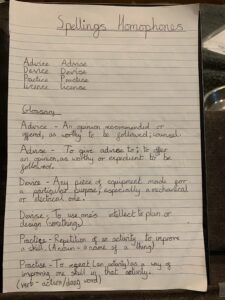 Spellings Homophones
Advice Advise
Device Devise
Practice Practise
Licence License
Glossary
Advice - An opinion recommended or
offered, as worthy to be followed; counsel.
Advise - To give advice to; to offer
an opinion, as worthy or expedient to be
followed.
Device - Any piece of equipment made for
a particular purpose, especially a mechanical
or electrical one.
Devise; To use one's intellect to plan or
design (something).
Practice - Repetition of an activity to improve
a skill (Noun - name of a thing)
Practise - To repeat an activity as a way of
improving one skill in that activity.
(verb - action/doing word)